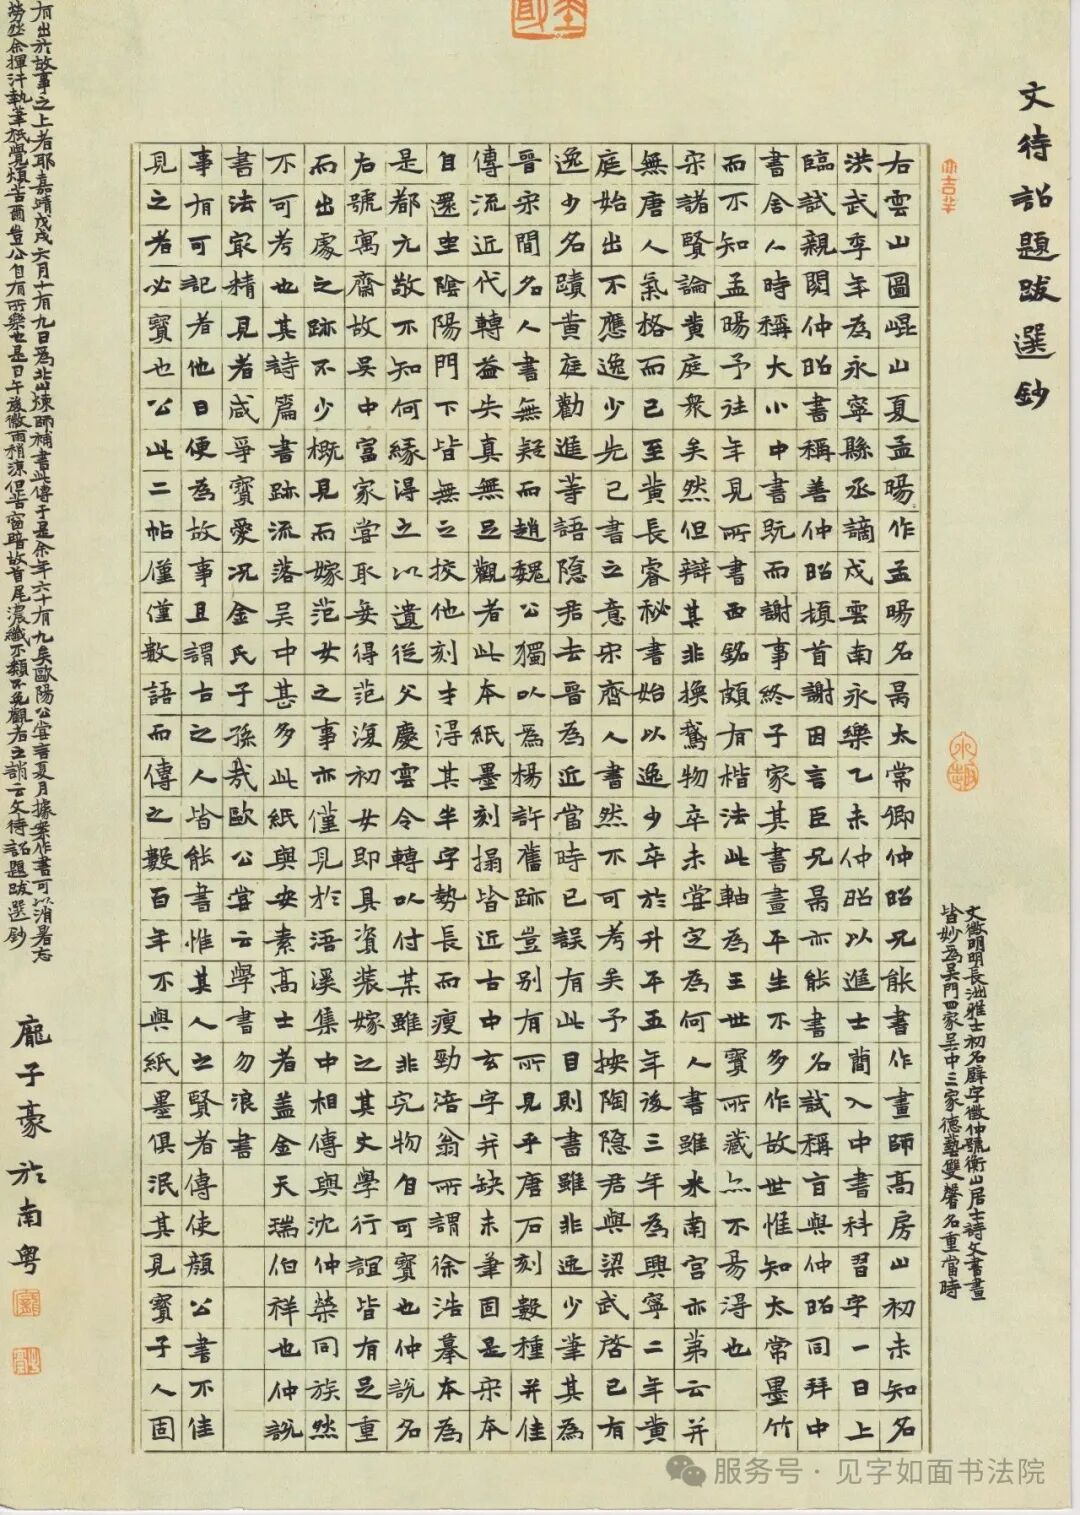 文待詔題跋選鈔
文徵明明長洲雅士初名壁字徵仲號衡山居士詩文書畫
皆妙為吳門四家吳中三家德藝雙馨名重當時
右雲山圖崐山夏孟暘作孟暘名昺太常卿仲昭兄能書作畫師高房山初未知名
洪武季年為永寧縣丞謫戍雲南永樂乙未仲昭以進士簡入中書科習字一日上
臨試親閱仲昭書稱善仲昭頓首謝因言臣兄昺亦能書名試稱旨與仲昭同拜中
書舍人時稱大小中書既而謝事終于家其書畫平生不多作故世惟知太常墨竹
而不知孟暘予往年見所書西銘頗有楷法此軸為王世寶所藏尓不易得也
宋諸賢論黄庭衆矣然但辯其非換鵝物卒未嘗定為何人書雖米南宫亦第云并
無唐人氣格而已至黄長睿秘書始以逸少卒於升平五年後三年為興寧二年黄
庭始出不應逸少先已書之意宋齊人書然不可考矣予按陶隐君與梁武啓已有
逸少名蹟黄庭勸進等語隐居去晉為近當時已誤有此目則書雖非逸少筆其為
晉宋間名人書無疑而趙魏公獨以為楊許舊跡豈别有所見乎唐石刻數種并佳
傳流近代轉益失真無足觀者此本紙墨刻搨皆近古中玄字并缺末筆固是宋本
自還坐陰陽門下皆無之挍他刻才得其半字勢長而瘦勁涪翁所謂徐浩摹本為
是都九敬不知何緣得之以遺從父慶雲令轉以付某雖非完物自可寶也仲說名
右號寓齋故吴中富家嘗取毋得范復初女即具資装嫁之其文學行誼皆有足重
而出處之跡不少概見而嫁范女之事亦僅見於浯溪集中相傳與沈仲榮同族然
不可考也其詩篇書跡流落吴中甚多此紙與安素高士者盖金天瑞伯祥也仲說
書法冣精見者咸爭寶愛况金氏子孫哉歐公嘗云學書勿浪書
事有可記者他日便為故事且謂古之人皆能書惟其人之賢者傳使顔公書不佳
見之者必寶也公此二帖僅僅數語而傳之數百年不與紙墨俱泯其見寶于人固
有出於故事之上者耶嘉靖戊戌六月十有九日為北山煉師補書此傳于是余年六十有九矣歐陽公嘗言夏月據案作書可以消暑忘
勞然余揮汗執筆祇覺煩苦酉豈公自有所樂也是日午後微雨稍涼但苦窗暗故首尾濃纖不類不免觀者之誚云文待詔題跋選鈔
龐子豪於南粤
服务号·见字如面书法院